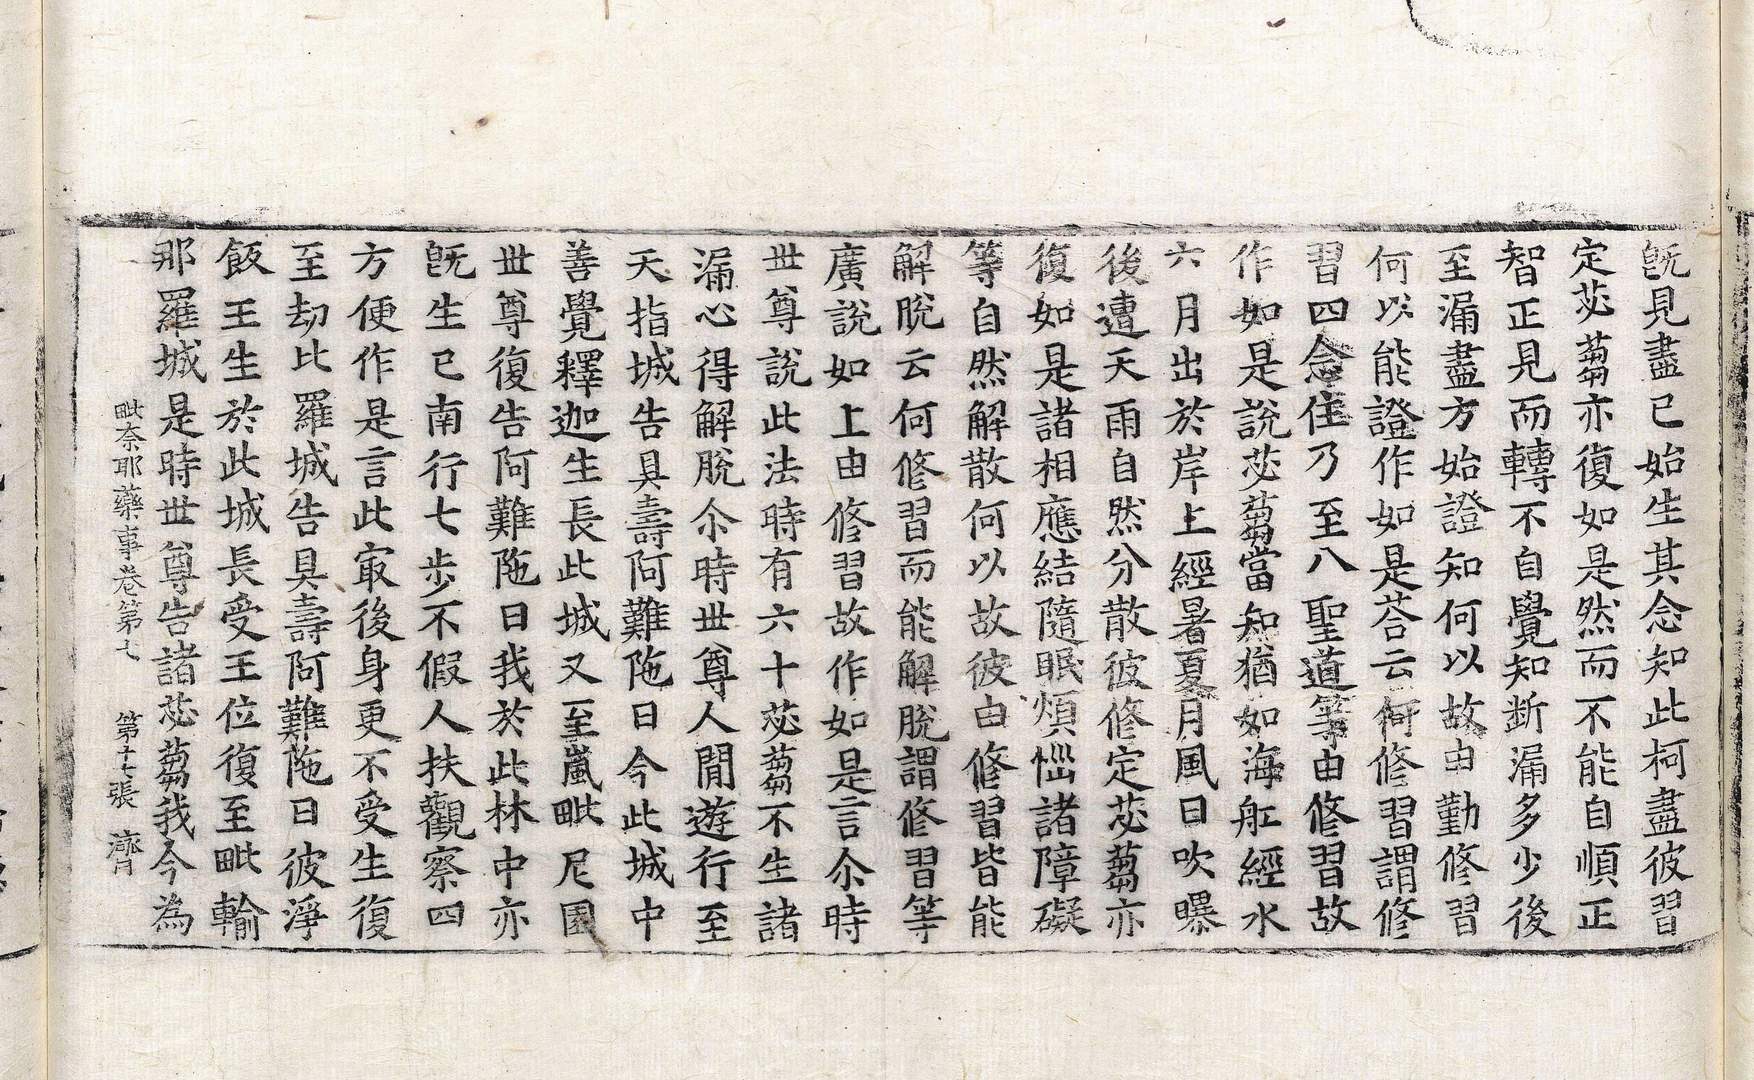 旣見盡已始生其念知此柯盡彼習
定苾蒭亦復如是然而不能自順正
智正見而轉不自覺知断漏多少後
至漏盡方始證知何以故由勤修習
何以能證作如是荅云何修習謂修
習四念住乃至八聖道等由修習故
作如是說苾蒭當知猶如海舡經水
六月出於岸上經暑夏月風日吹曝
後遭天雨自然分散彼修定苾蒭亦
復如是諸相應結隨眠煩惱諸障礙
等自然解散何以故彼由修習皆能
解脫云何修習而能解脫謂修習等
廣說如上由修習故作如是言尒時
世尊說此法時有六十苾蒭不生諸
漏心得解脫尒時世尊人閒遊行至
天指城告具壽阿難陁曰今此城中
善覺釋迦生長此城又至嵐毗尼園
世尊復告阿難陁曰我於此林中亦
旣生已南行七步不假人扶觀察四
方便作是言此㝡後身更不受生復
至劫比羅城告具壽阿難陁曰彼淨
飯王生於此城長受王位復至毗輸
那羅城是時世尊告諸苾蒭我今為
毗奈耶藥事卷第七　第十七張　濟